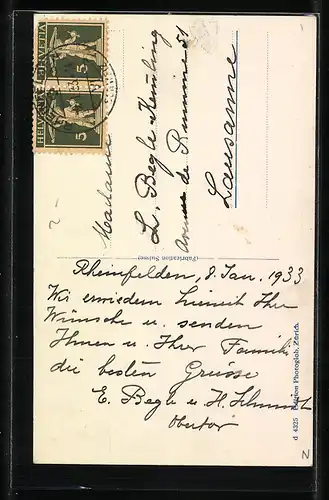 HELVETIA
5
HELVETIA
5
Madame
L. Begle-Keubling
Avenue de Rumine 51
Lausanne
(Fabrication Suisse)
Rheinfelden, 8 Jan. 1933
Wir erwiedern hiemit Ihre
Wünsche u. senden
Ihnen u. Ihrer Familie
die besten Grüsse
E. Begle u. H. Schmid
Obertor
d 4325 Edition Photoglob, Zürich.